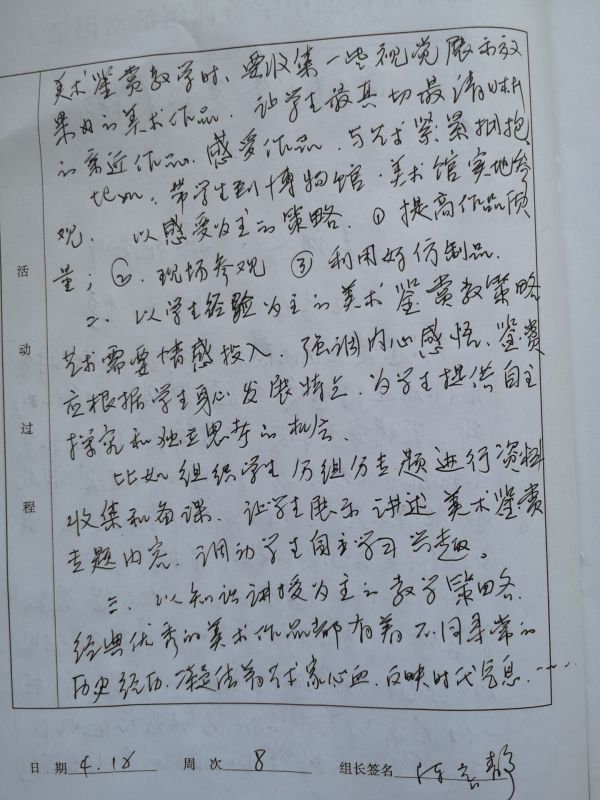 美术鉴赏教学时、要收集一些视觉展示效
果好的美术作品. 让学生最真切最清晰
的亲近作品. 感受作品. 与艺术紧紧拥抱
比如, 带学生到博物馆. 美术馆实地参
观. 以感受为主的策略. ① 提高作品质
量; ②. 现场参观 ③ 利用好仿制品.
二. 以学生经验为主的美术鉴赏教策略
艺术需要情感投入. 强调内心感悟. 鉴赏
应根据学生身心发展特点. 为学生提供自主
探究和独立思考的机会.
比如组织学生分组分专题进行资料
收集和备课. 让学生展示讲述美术鉴赏
专题内容. 调动学生自主学习兴趣。
三. 以知识讲授为主的教学策略.
经典优秀的美术作品都有着不同寻常的
历史经历. 凝结着艺术家心血. 反映时代气息.……
活动过程
日期 4.18 周次 8 组长签名